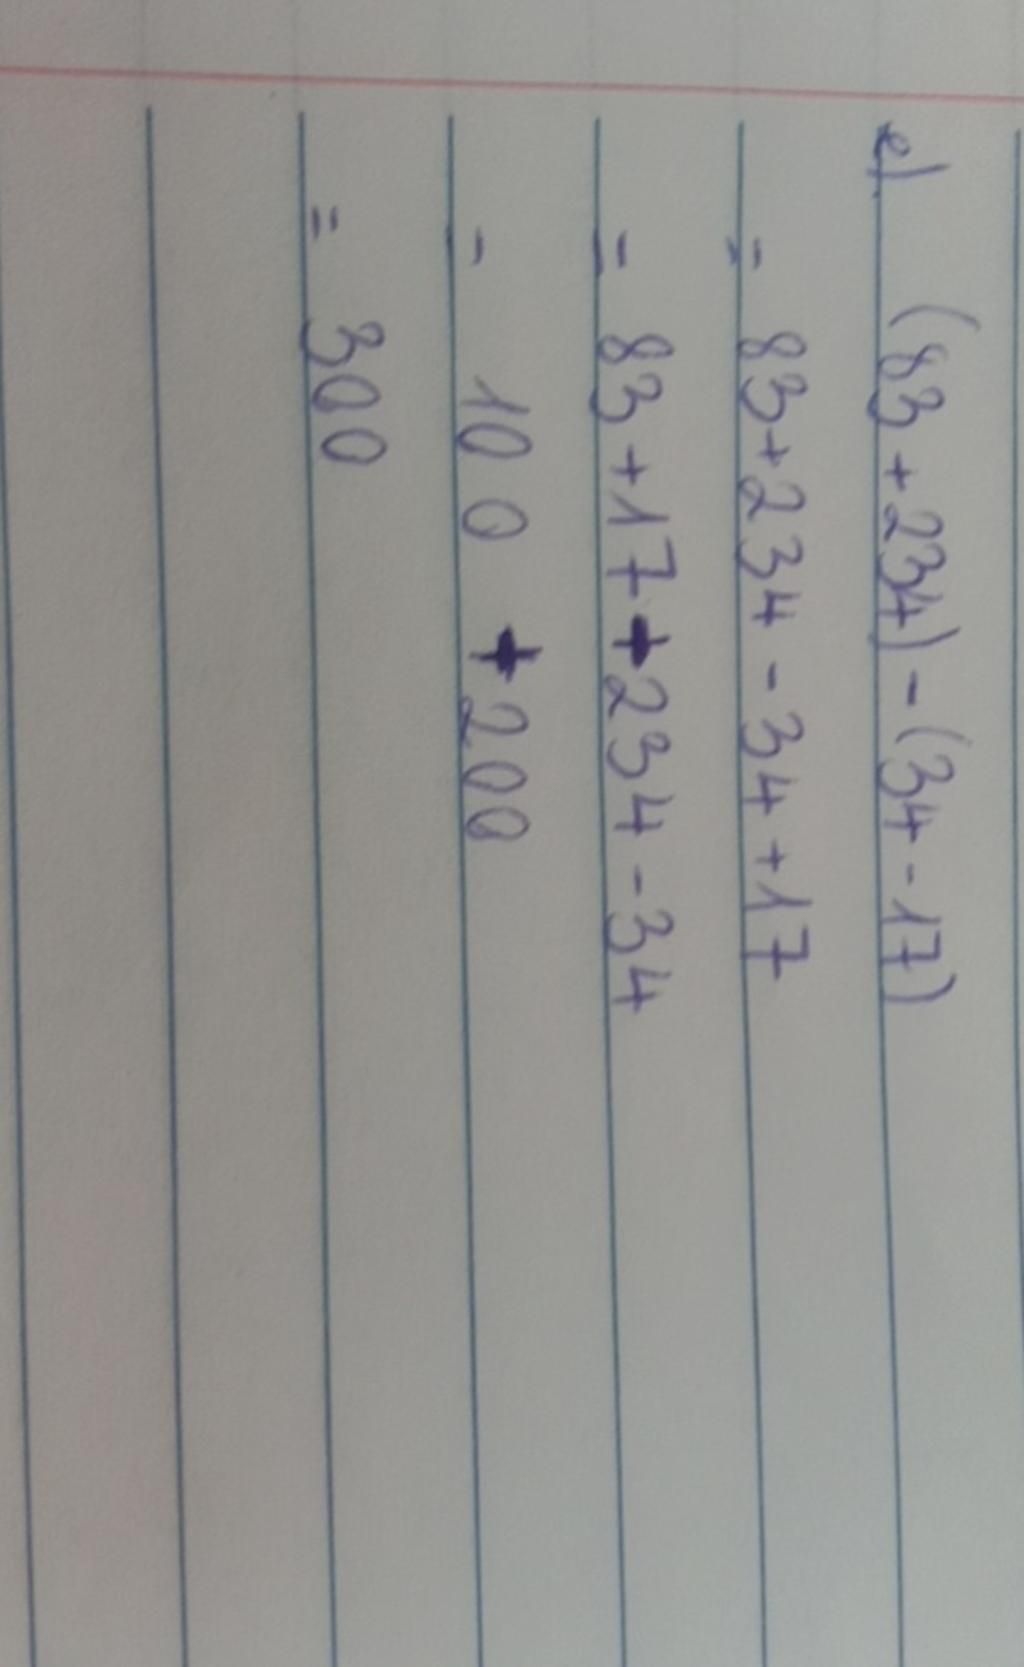 e) (83 + 234) - (34 - 17)
= 83 + 234 - 34 + 17
= 83 + 17 + 234 - 34
= 100 + 200
= 300